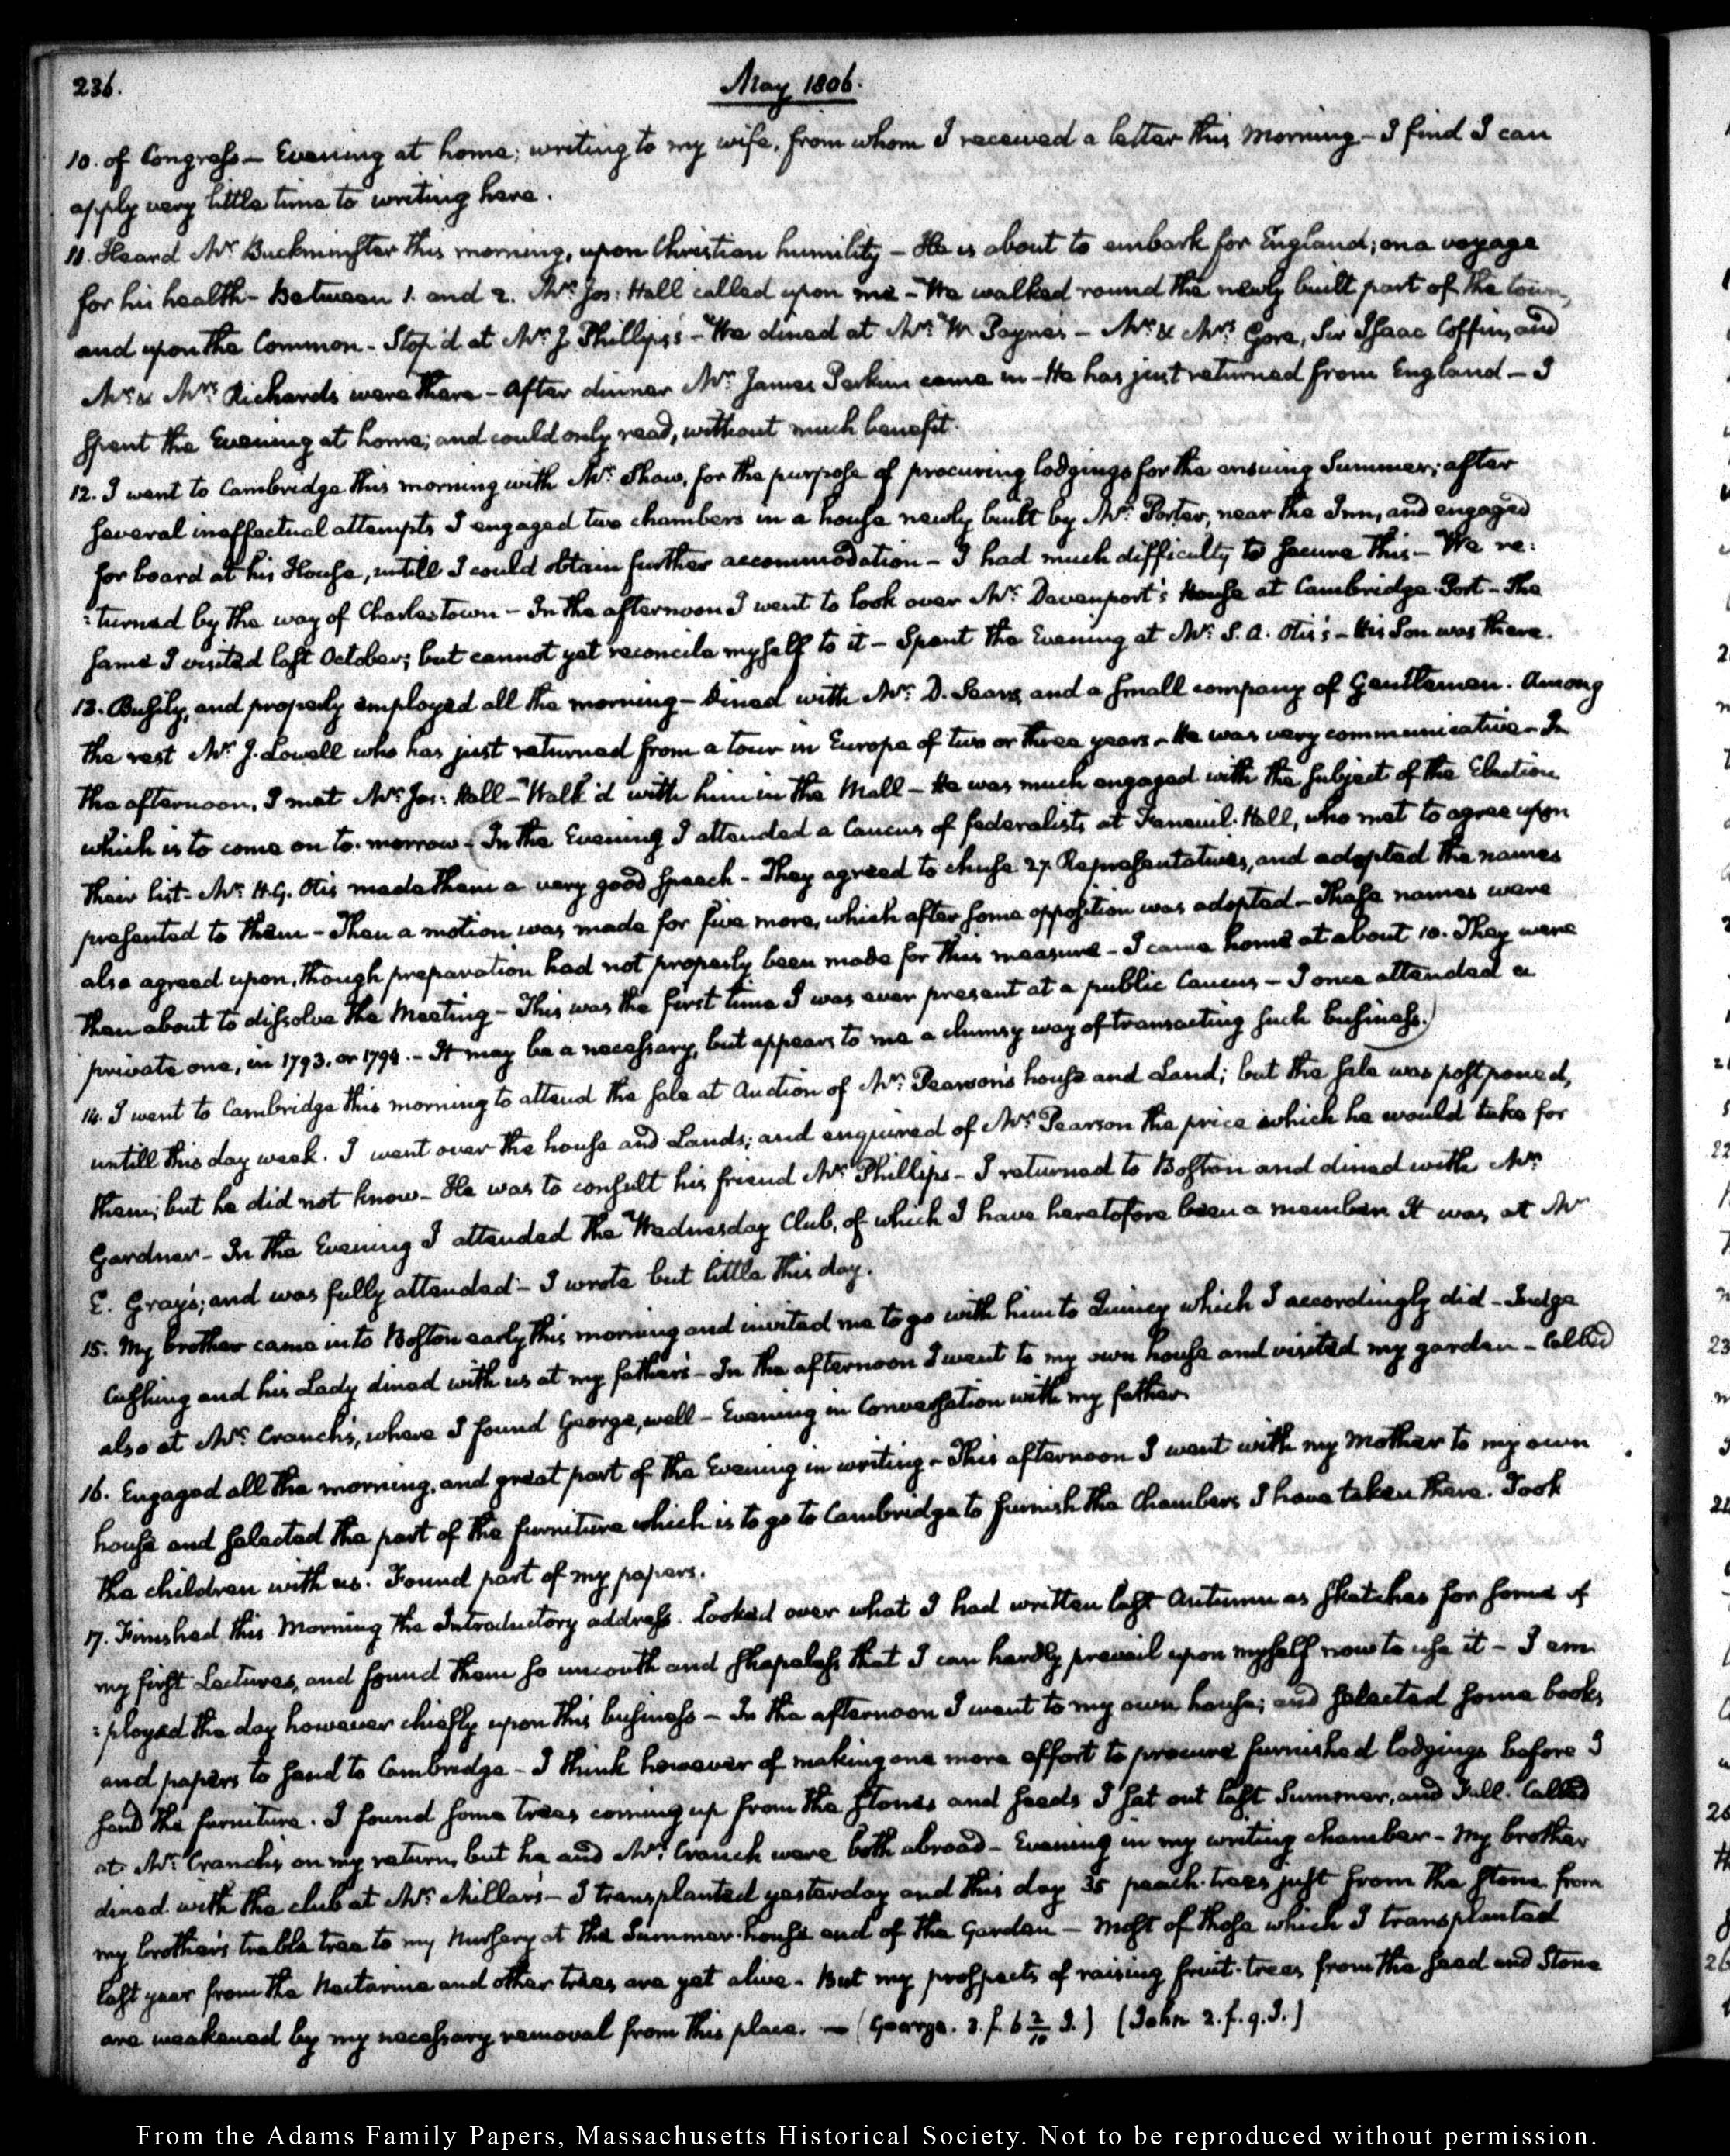 236.
May 1806.
10. of Congress — Evening at home; writing to my wife, from whom I received a letter this Morning — I find I can
apply very little time to writing here.
11. Heard Mr. Buckminster this morning, upon Christian humility — He is about to embark for England; on a voyage
for his health — Between 1. and 2. Mr. Jos: Hall called upon me — We walked round the newly built part of the town,
and upon the Common — Stop'd at Mr. J. Phillips's — We dined at Mr. W. Payne's — Mr. & Mrs. Gore, Sir Isaac Coffin, and
Mr. & Mrs. Richards were there — After dinner Mr. James Perkins came in — He has just returned from England — I
spent the Evening at home; and could only read, without much benefit.
12. I went to Cambridge this morning with Mr. Shaw, for the purpose of procuring lodgings for the ensuing Summer; after
several ineffectual attempts I engaged two chambers in a house newly built by Mr. Porter, near the Inn, and engaged
for board at his House, untill I could obtain further accommodation — I had much difficulty to secure this — We re:
:turned by the way of Charlestown — In the afternoon I went to look over Mr. Davenport's House at Cambridge-Port — The
same I visited last October; but cannot yet reconcile myself to it — Spent the Evening at Mr. S. A. Otis's — His Son was there.
13. Busily, and properly employed all the morning — Dined with Mr. D. Sears, and a small company of Gentlemen. Among
the rest Mr. J. Lowell who has just returned from a tour in Europe of two or three years — He was very communicative — In
the afternoon, I met Mr. Jos: Hall — Walk'd with him in the Mall — He was much engaged with the subject of the Election
which is to come on to-morrow — (In the Evening I attended a Caucus of federalists at Faneuil-Hall, who met to agree upon
their list — Mr. H. G. Otis made them a very good speech — They agreed to chuse 27. Representatives, and adopted the names
presented to them — Then a motion was made for five more, which after some opposition was adopted — These names were
also agreed upon, though preparation had not properly been made for this measure — I came home at about 10. They were
then about to dissolve the Meeting — This was the first time I was ever present at a public Caucus — I once attended a
private one, in 1793. or 1794. — It may be a necessary, but appears to me a clumsy way of transacting such business.)
14. I went to Cambridge this morning to attend the sale at Auction of Mr. Pearson's house and Land; but the sale was postponed,
untill this day week. I went over the house and Lands; and enquired of Mr. Pearson the price which he would take for
them; but he did not know — He was to consult his friend Mr. Phillips — I returned to Boston and dined with Mr.
Gardner — In the Evening I attended the Wednesday Club, of which I have heretofore been a member. It was at Mr
E. Gray's; and was fully attended — I wrote but little this day.
15. My brother came into Boston early this morning and invited me to go with him to Quincy which I accordingly did — Judge
Cushing and his Lady dined with us at my father's — In the afternoon I went to my own house and visited my garden — Called
also at Mr. Cranch's, where I found George, well — Evening in Conversation with my father.
16. Engaged all the morning, and great part of the Evening in writing — This afternoon I went with my Mother to my own
house and selected the part of the furniture which is to go to Cambridge to furnish the Chambers I have taken there. Took
the children with us. Found part of my papers.
17. Finished this Morning the Introductory address. Looked over what I had written last Autumn as sketches for some of
my first Lectures, and found them so uncouth and shapeless that I can hardly prevail upon myself now to use it — I em:
:ployed the day however chiefly upon this business — In the afternoon I went to my own house; and selected some books
and papers to send to Cambridge — I think however of making one more effort to procure furnished lodgings before I
send the furniture. I found some trees coming up from the stones and seeds I sat out last Summer, and Fall. Called
at Mr. Cranch's on my return, but he and Mrs. Cranch were both abroad — Evening in my writing chamber — My brother
dined with the club at Mr. Miller's — I transplanted yesterday and this day 35 peach-trees just from the stone from
my brother's treble tree to my Nursery at the Summer-house end of the Garden — Most of those which I transplanted
last year from the Nectarine and other trees are yet alive. But my prospects of raising fruit-trees from the seed and Stone
are weakened by my necessary removal from this place. — (George. 3. f. 6 2/10 I.) (John 2. f. 9. I.)
From the Adams Family Papers, Massachusetts Historical Society. Not to be reproduced without permission.